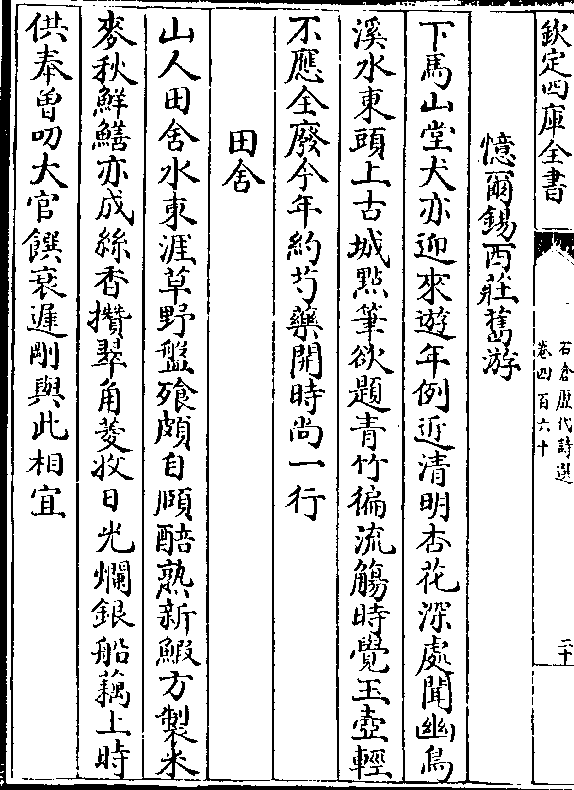 欽定四庫全書
石倉歷代詩選
卷四百六十
二十
憶爾錫西莊舊游
下馬山堂犬亦迎來遊年例近清明杏花深處聞幽鳥
溪水東頭上古城點筆欲題青竹徧流觴時覺玉壺輕
不應全廢今年約芍藥開時尚一行
田舍
山人田舍水東涯草野盤飱頗自頤醅熟新鰕方製米
麥秋鮮鱔亦成絲香攢翠角菱收日光爛銀船藕上時
供奉曾叨大官饌衰遲剛與此相宜